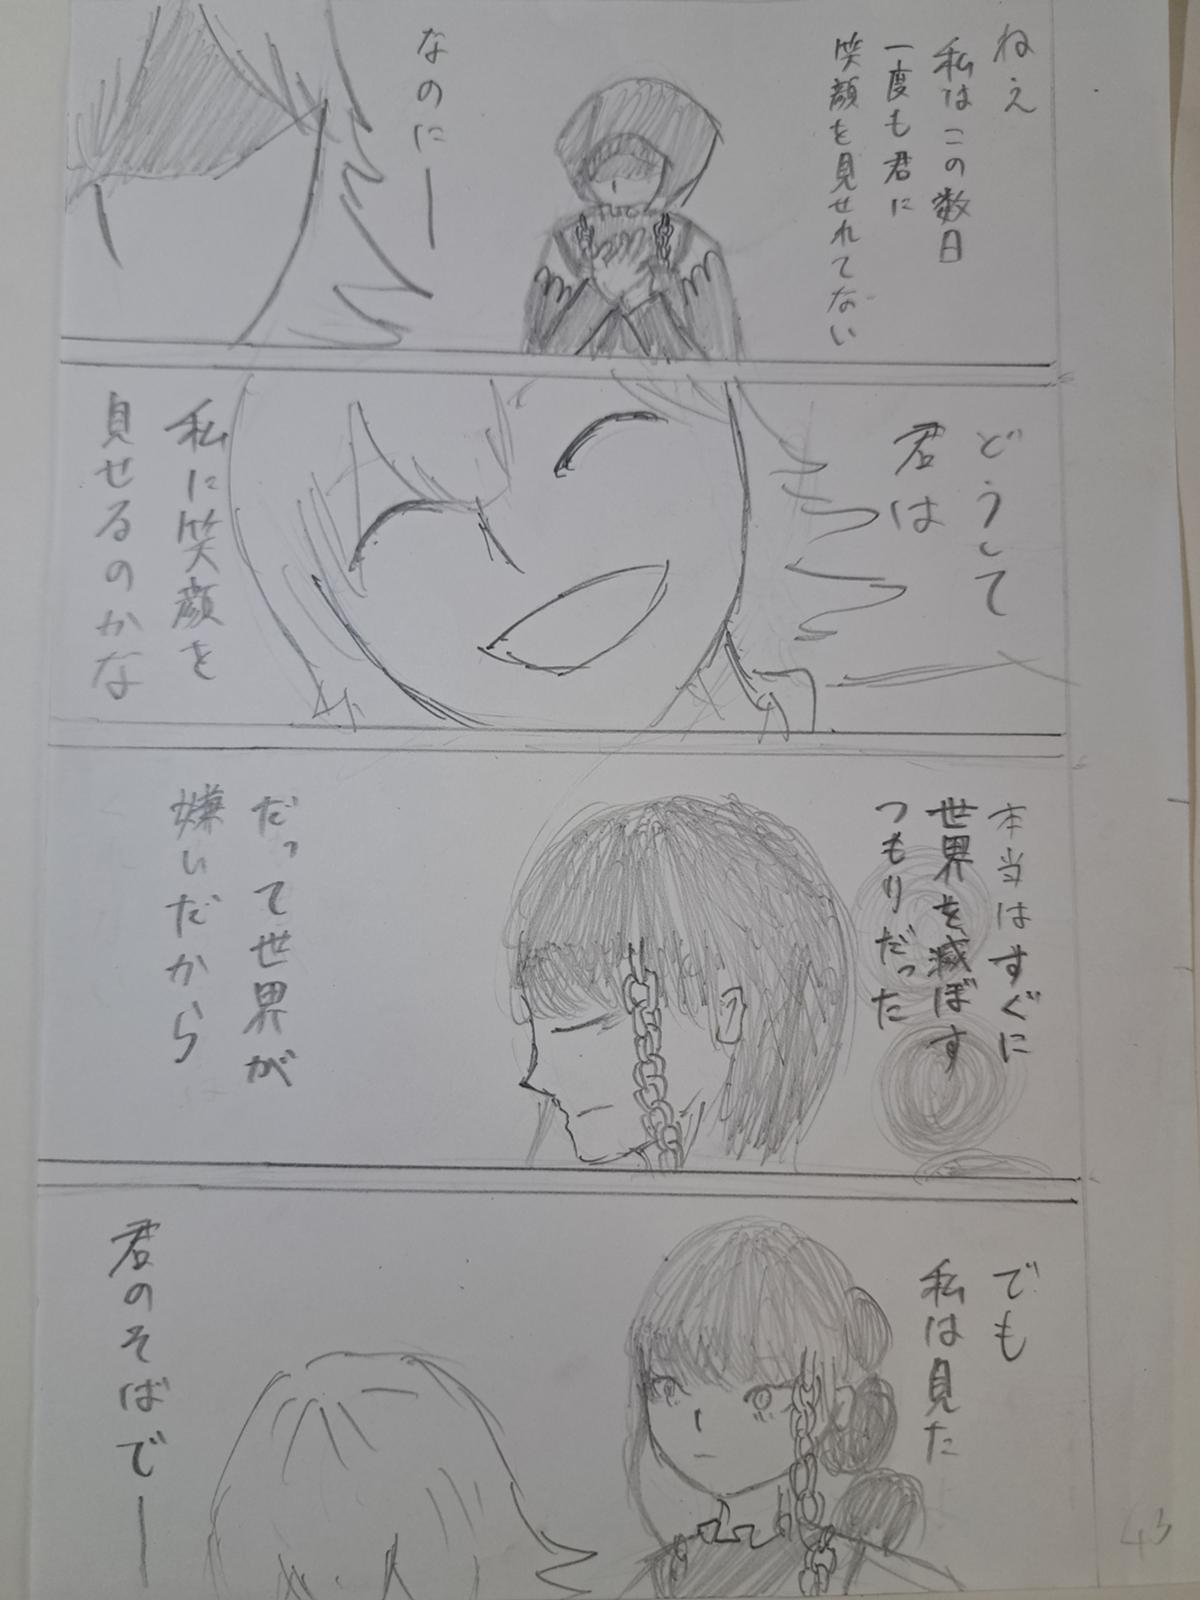 ねえ
私はこの数日
一度も君に
笑顔を見せれてない
なのにー
どうして
君は
私に笑顔を
見せるのかな
本当はすぐに
世界を滅ぼす
つもりだった
だって世界が
嫌いだから
でも
私は見た
君のそばでー
43